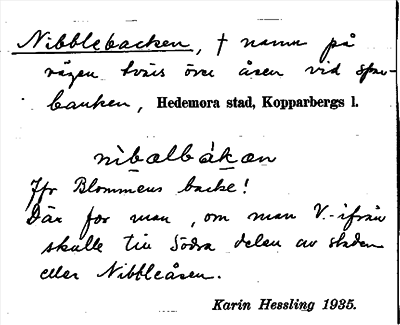 Nibblebacken, † namn på
vägen tvärs över åsen vid spar-
banken, Hedemora stad, Kopparbergs l.
nìbəlbákən
Jfr Blommens backe!
Där for man, om man V.-ifrån
skulle till Södra delen av staden
eller Nibbleåsen.
Karin Hessling 1935.